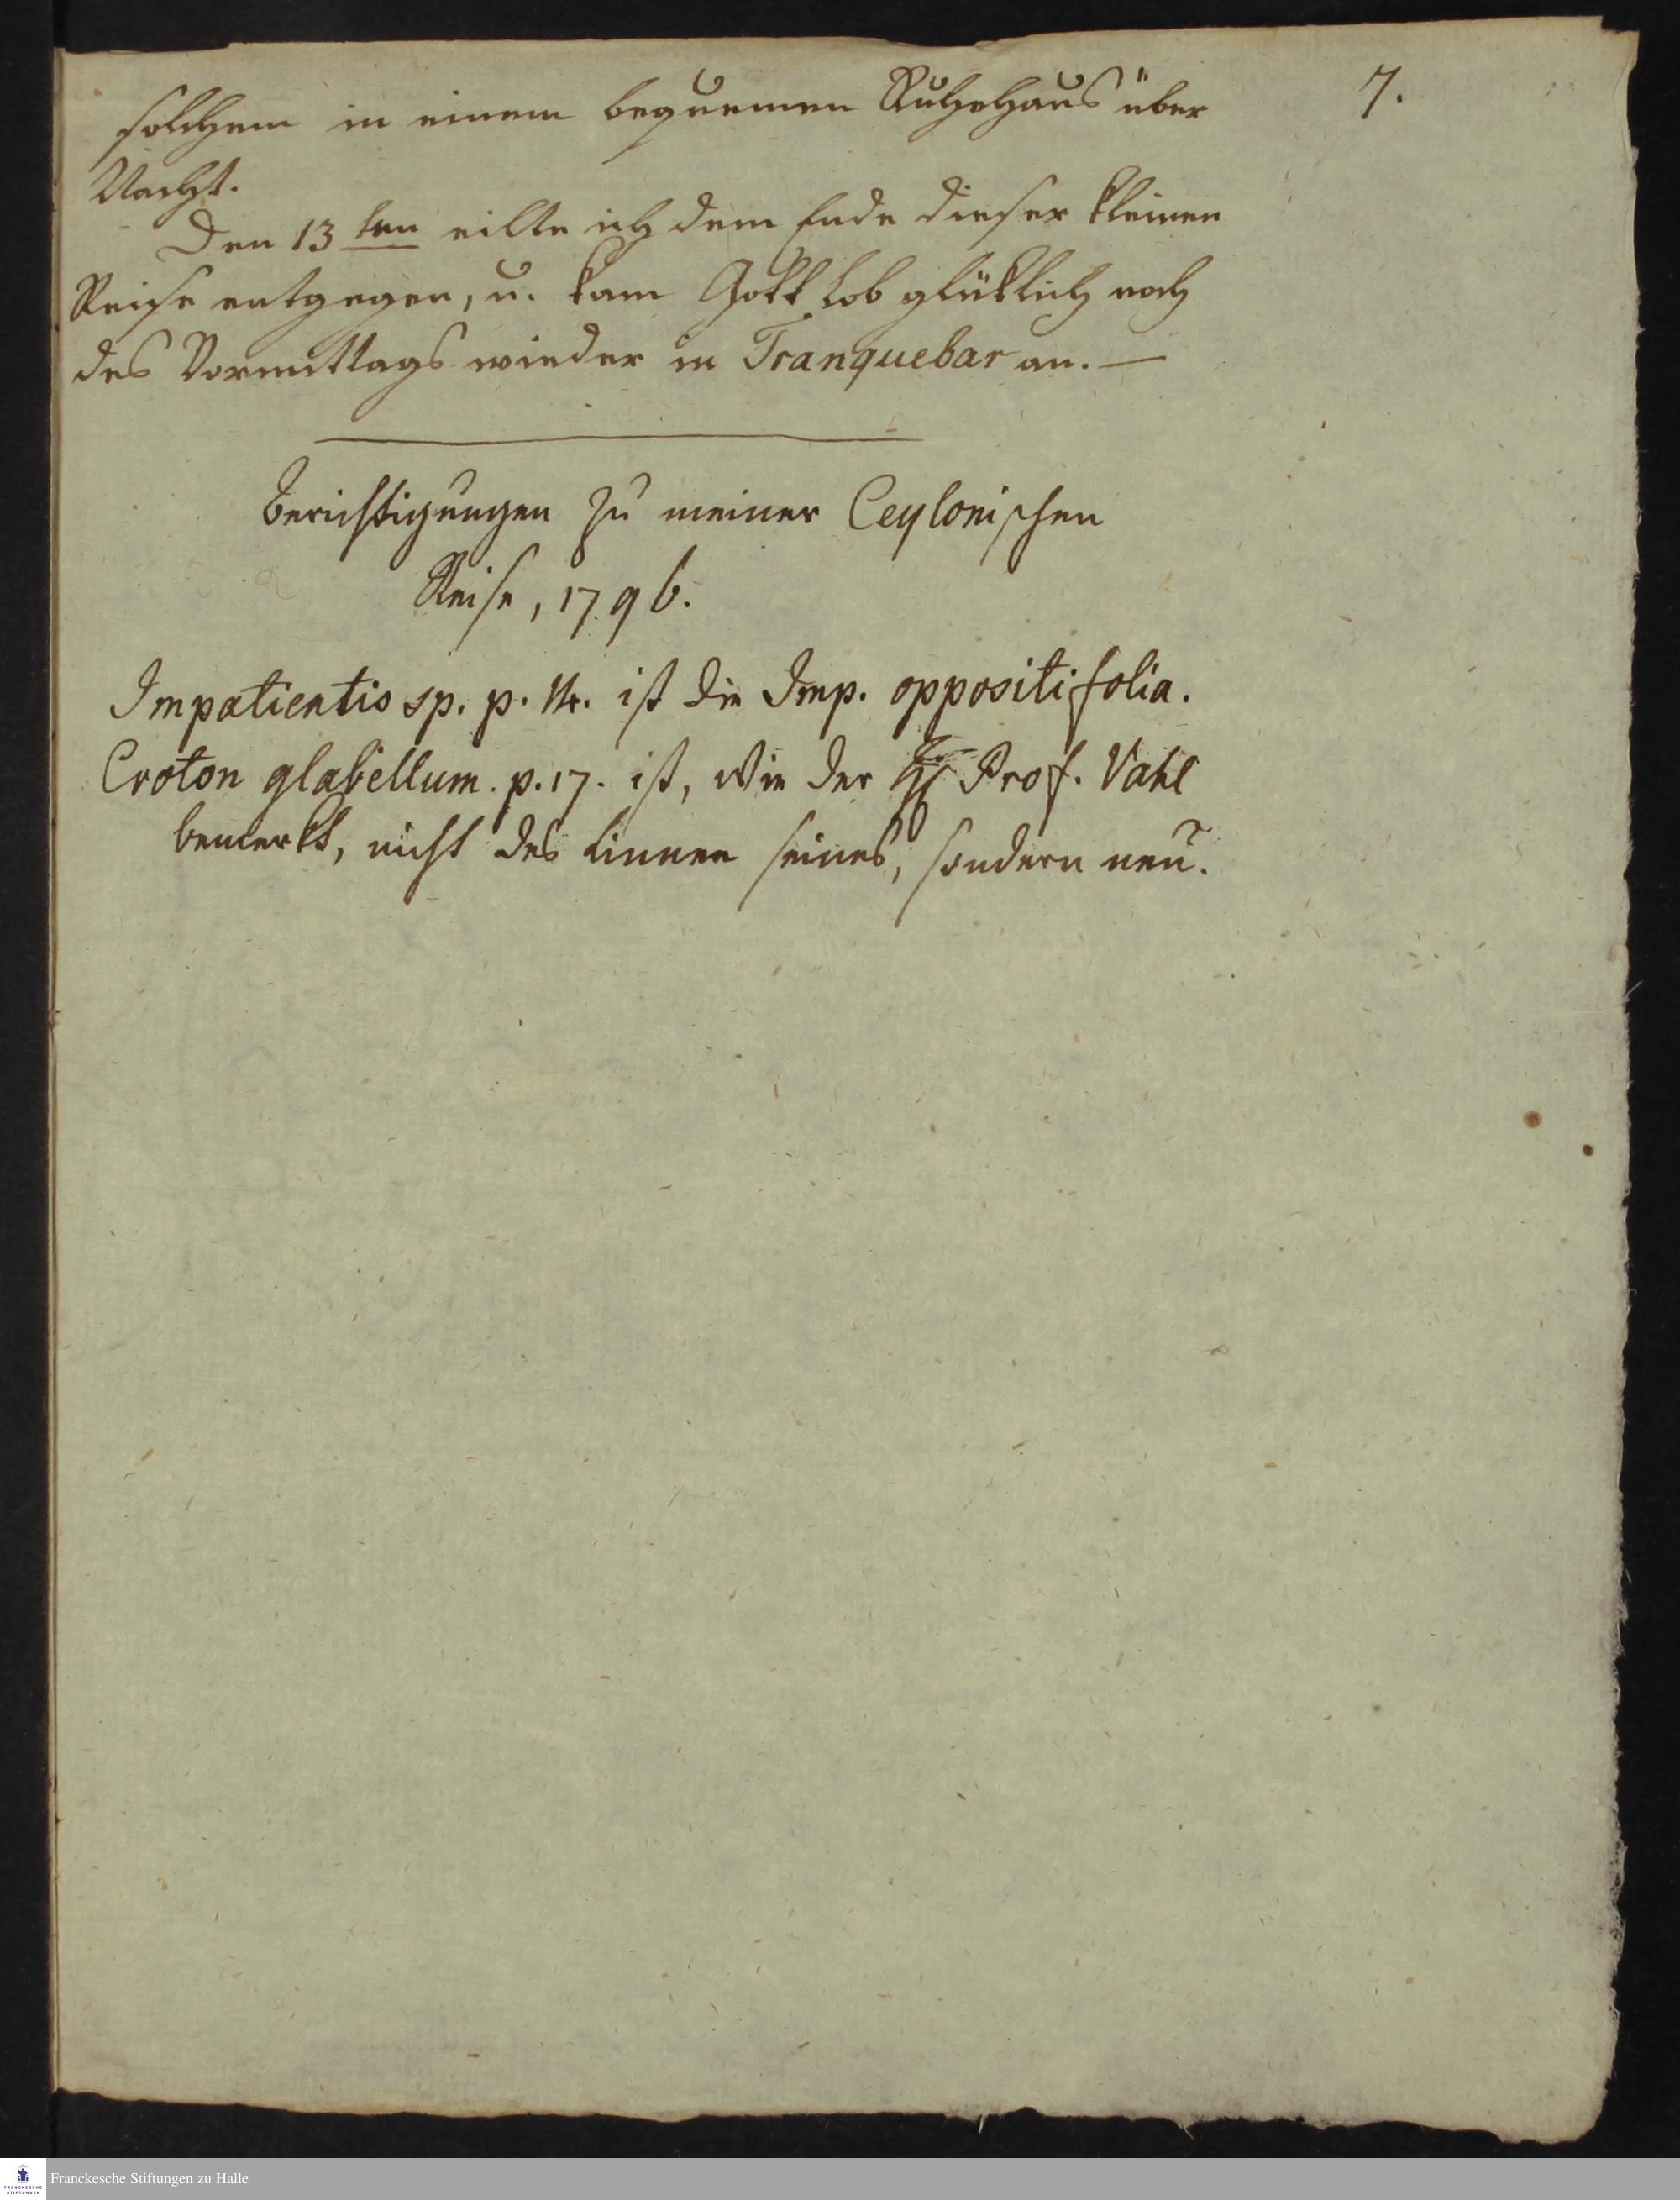 7.
solchem in einem bequemen Ruhehaus über
Nacht.
Den 13ten eilte ich dem Ende dieser kleinen
Reise entgegen, u. kam Gott Lob glüklich noch
des Vormittags wieder in Tranquebar an. —
Berichtigungen zu meiner Ceylonischen
Reise, 1796.
Impatientis sp. p. 14. ist die Imp. oppositifolia.
Croton glabellum. p. 17. ist, wie der H Prof. Vahl
bemerkt, nicht des Linnee seines, sondern neu.
FRANCKESCHE
STIFTUNGEN
Franckesche Stiftungen zu Halle